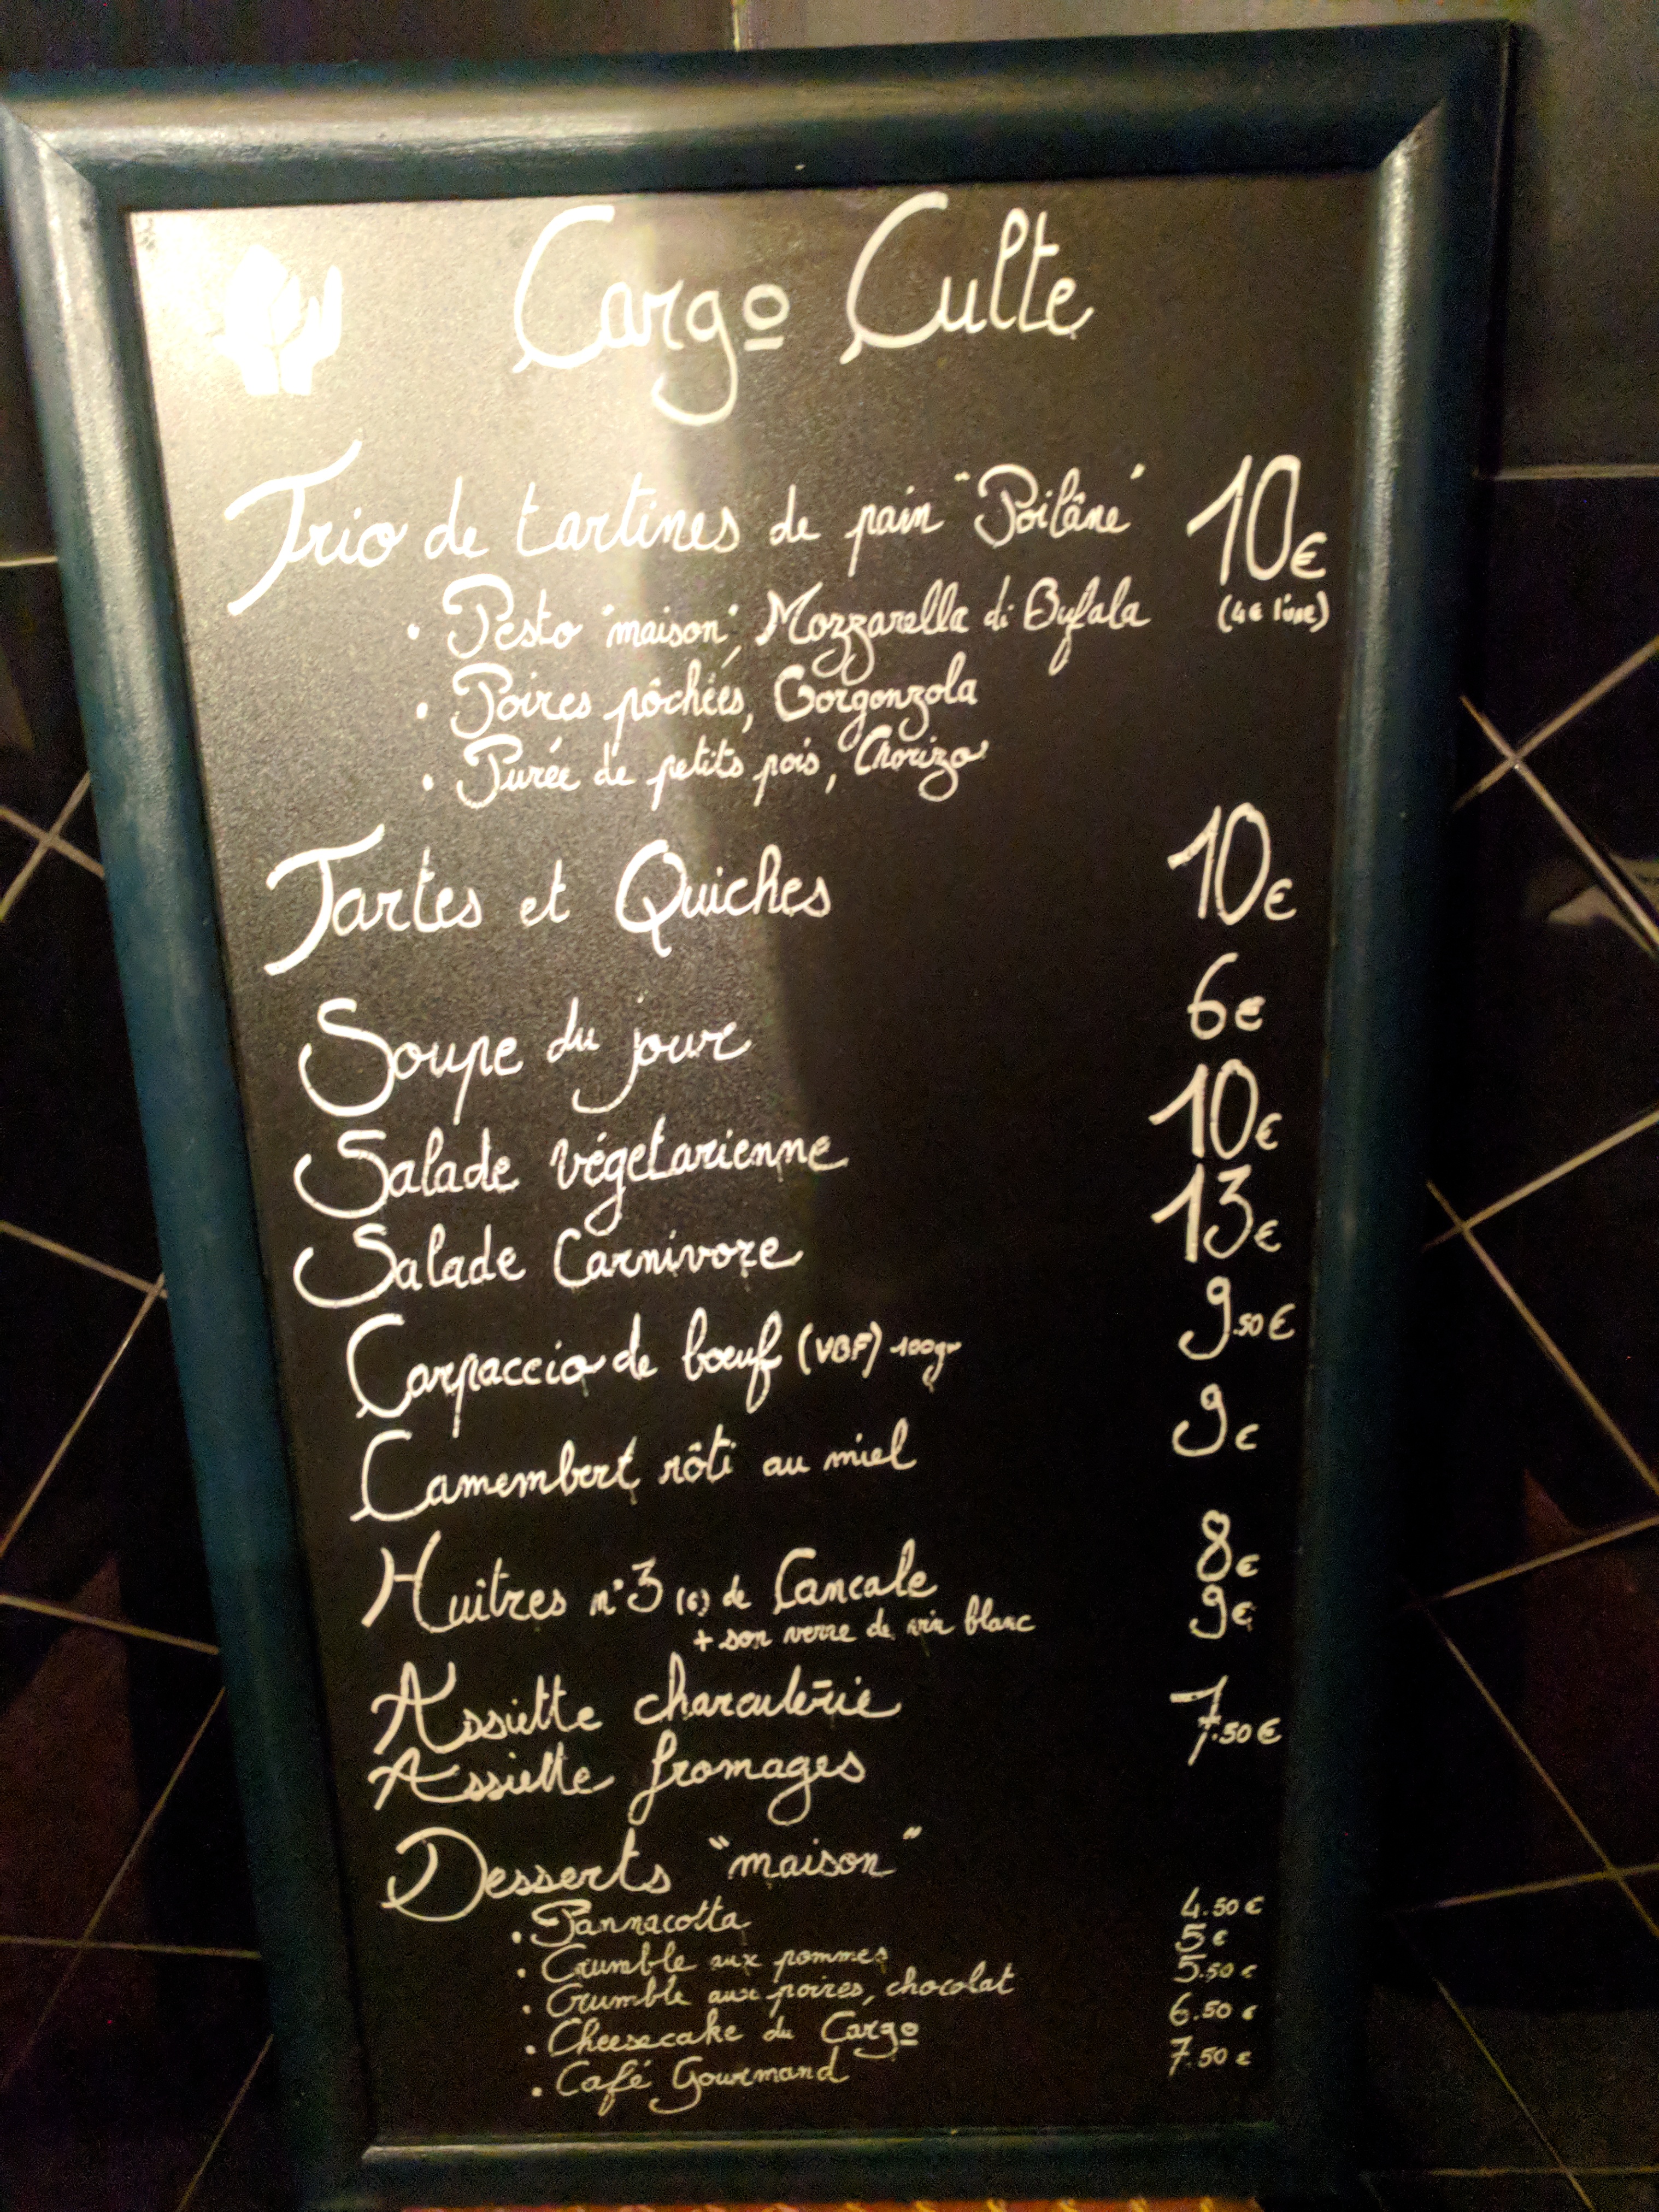 Cargo Culte
Trio de tartines de pain "Poilâne" 10€
• Pesto "maison", Mozzarella di Bufala (4€ l'une)
• Poires pôchées, Gorgonzola
• Purée de petits pois, Chorizo
Tartes et Quiches 10€
Soupe du jour 6€
Salade végetarienne 10€
Salade Carnivore 13€
Carpaccio de bœuf (VBF) 100gr 9.50€
Camembert rôti au miel 9€
Huitres n°3 (6) de Cancale 8€
+ son verre de vin blanc 9€
Assiette charcuterie 7.50€
Assiette fromages
Desserts "maison"
• Pannacotta 4.50€
• Crumble aux pommes 5€
• Crumble aux poires, chocolat 5.50€
• Cheesecake du Cargo 6.50€
• Café Gourmand 7.50€